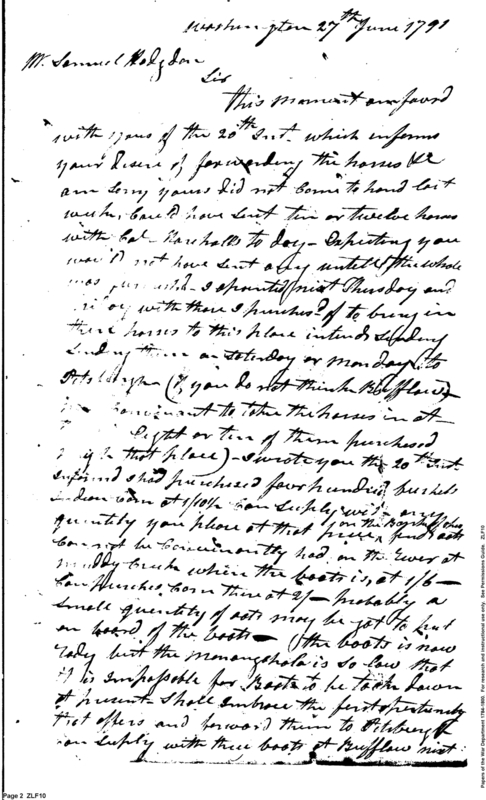 Washington 27th June 1791
Mr. Samuel Hodgdon
Sir
This moment am favord
with yours of the 20th Inst. which informs
your desire of forwarding the horses &c
am sorry yours did not come to hand last
week, Could have sent ten or twelve horses
with Col Marshalls to day - Expecting you
would not have sent any untill the whole
was I apointed next Thursday and
with those I purchasd of to bring in
there horses to this place intends Sending
Sending them on Saturday or Monday to
Pitsburgh (if you do not think Bufflow
Convenant to take the horses in at
Eight or ten of them purchased
that place) - I wrote you the 20th Inst
Informd I had purchased four hundred bushels
Indean Corn at 1/10½ Can Supply with any
quantity you please at that price, find oats
Can not be Conveniantly had on the River at
muddy Creek where the boats is, at 1/6 -
Can purches Corn there at 2/- probably a
Small quantity of oats may be got to put
on board of the boats - (the boats is now
rady but the monongohala is so low that
it is impossable for Boats to be taken down
at present Shall embrace the first opertunity
that offers and forward them to Pitsburgh
Can Supply with three boats at Bufflow next
Page 2 ZLF10
Papers of the War Department 1784-1800. For research and instructional use only. See Permissions Guide. ZLF10